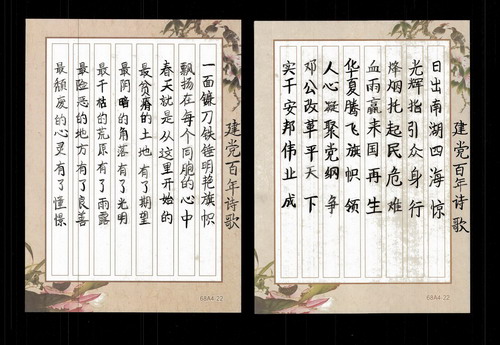 建党百年诗歌
一面镰刀铁锤明艳旗帜
飘扬在每个同胞的心中
春天就是从这里开始的
最贫瘠的土地有了期望
最阴暗的角落有了光明
最干枯的荒原有了雨露
最险恶的地方有了良善
最颓废的心灵有了憧憬
68A4-22
建党百年诗歌
日出南湖四海惊
光辉指引众身行
烽烟托起民危难
血雨赢来国再生
华夏腾飞旗帜领
人心凝聚党纲争
邓公改革平天下
实干安邦伟业成
68A4-22